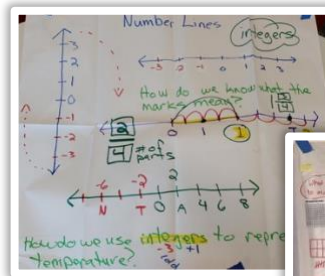 Number Lines
integers
3
2
1
0
-1
-2
-3
-3 -2 -1 0 1 2 3
How do we know what the
marks mean?
3
4
2
4
# of
parts
0 1 1
-6 -2 2
N T 0 A 4 6 8
How do we use integers to repre
temperature?
-3 +1